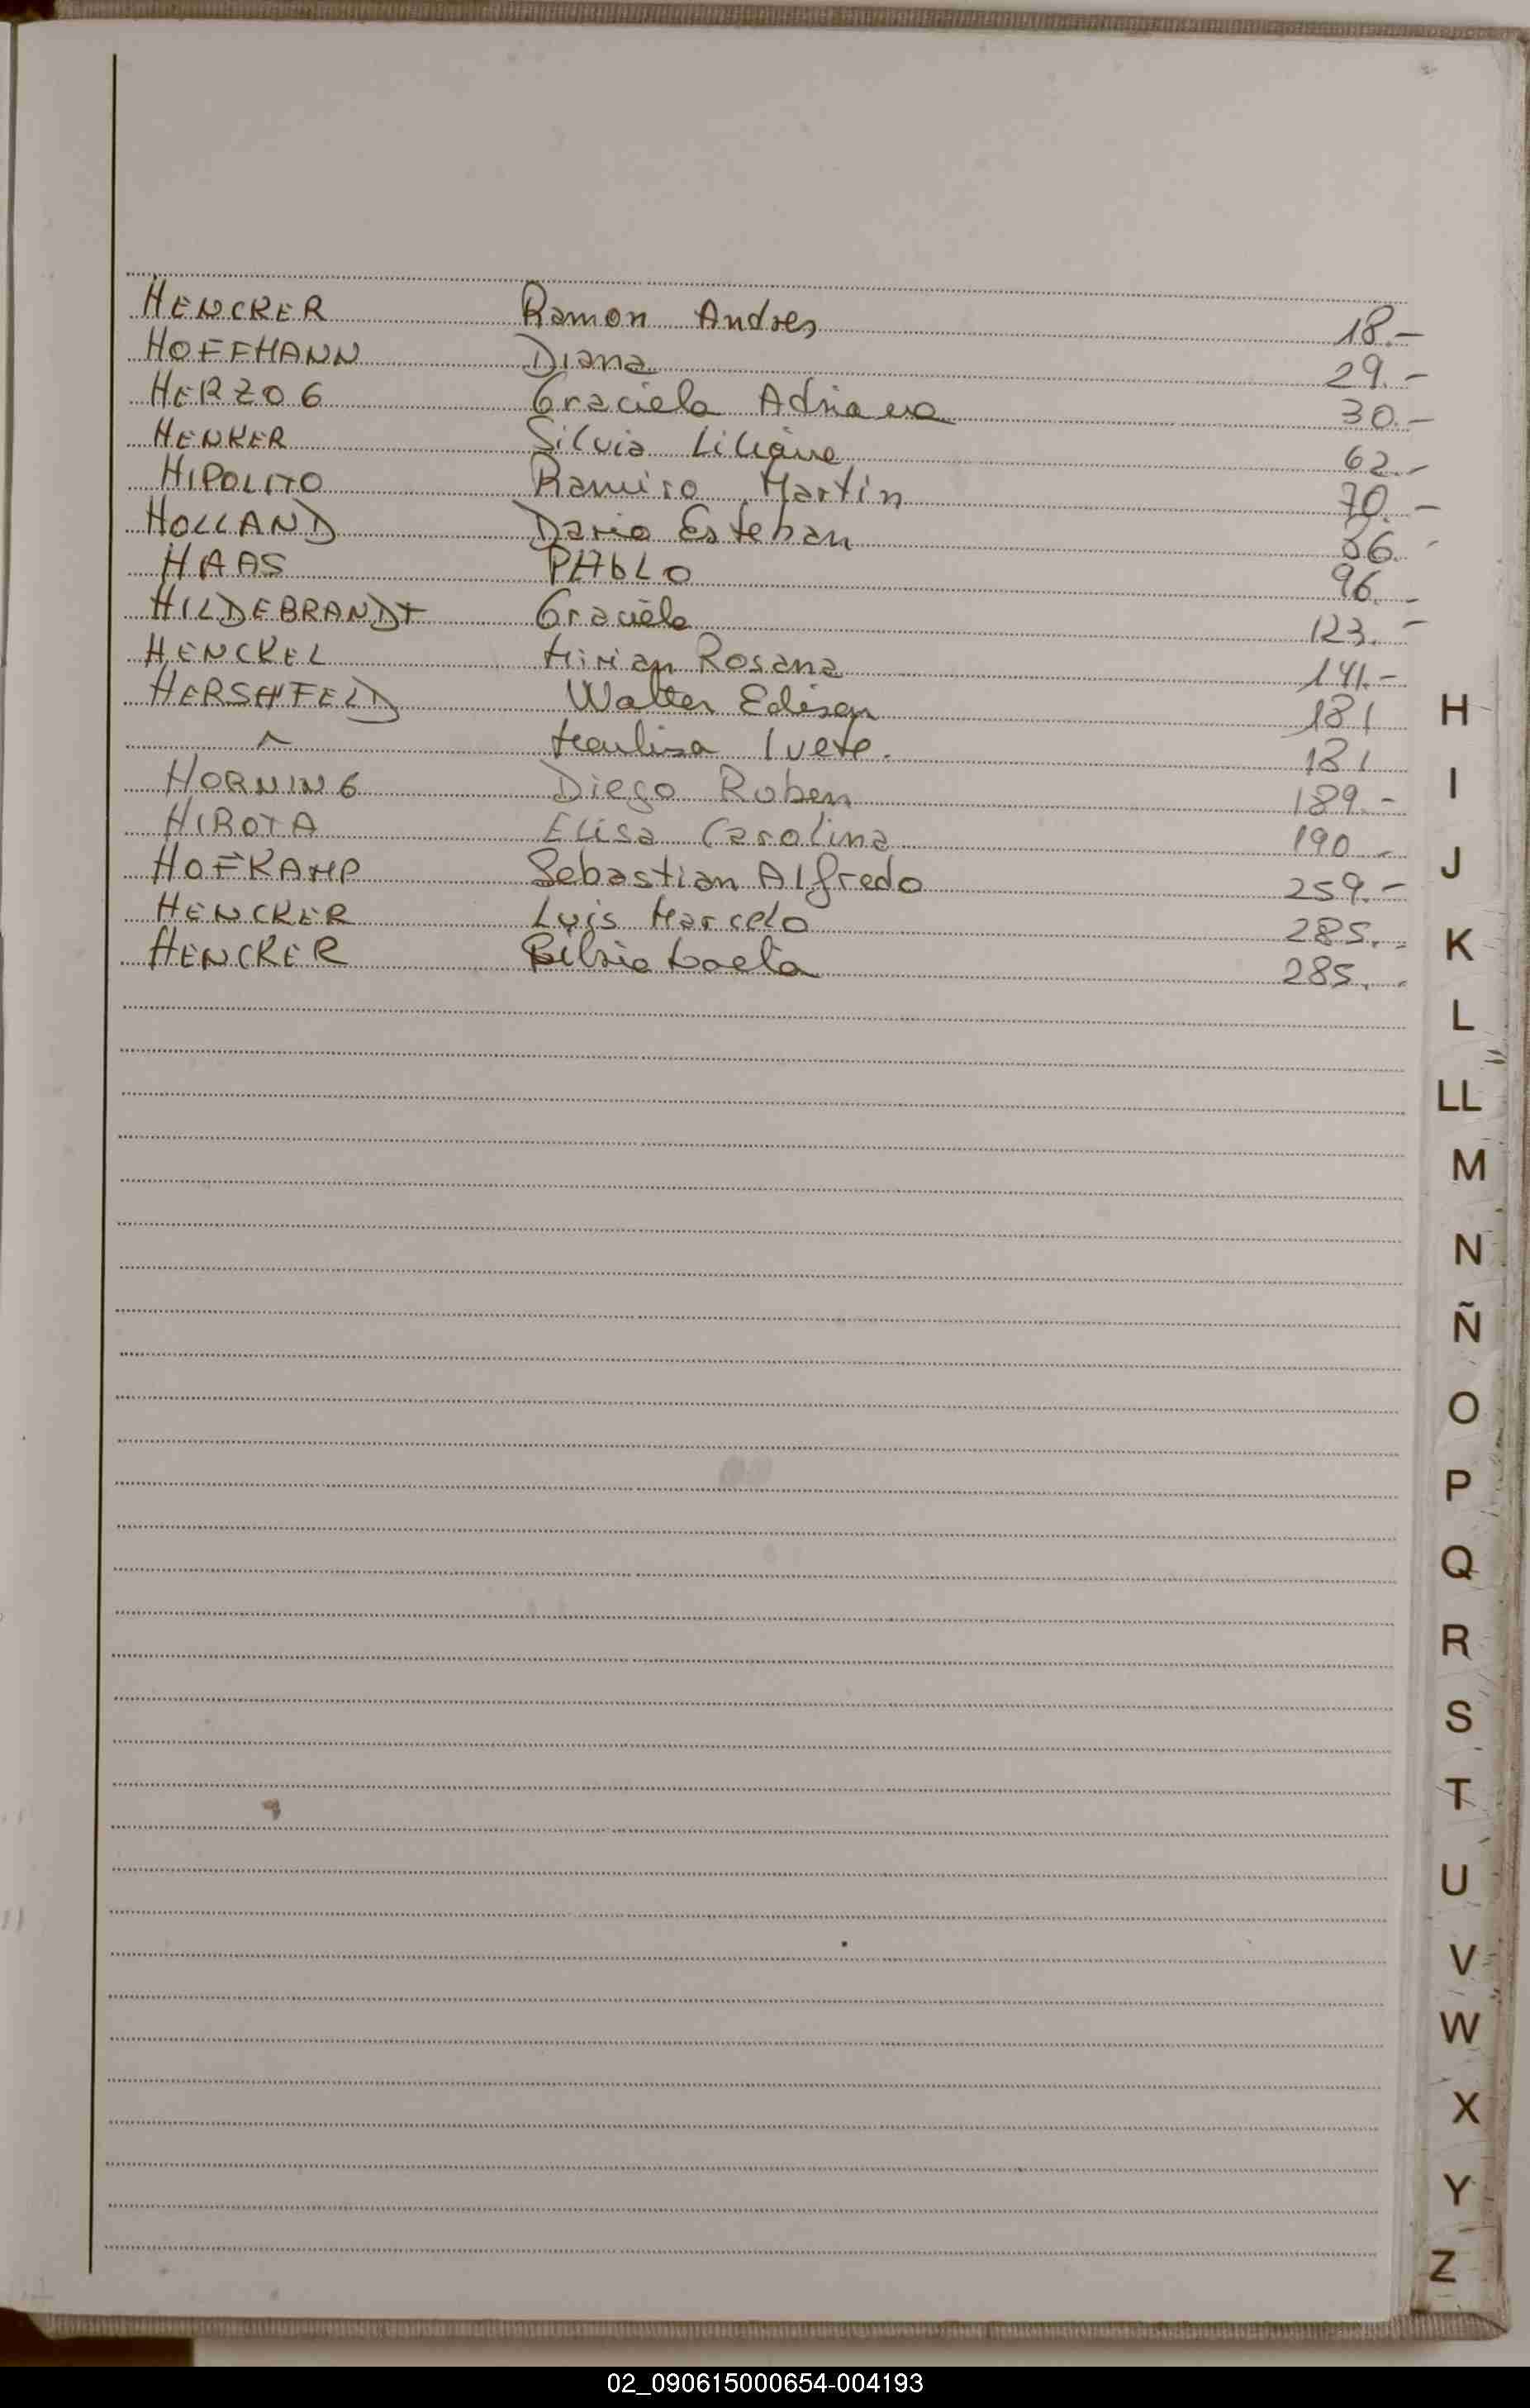 HENCKER Ramon Andres 18.-
HOFFMANN Diana 29.-
HERZOG Graciela Adriana 30.-
HENKER Silvia Liliana 62.-
HIPOLITO Ramiro Martin 70.-
HOLLAND Dario Esteban 86.-
HAAS PAbLO 96.-
HILDEBRANDT Graciela 123.-
HENCKEL Mirian Rosana 141.-
HERSHFELD Walter Edison 181
Ivete. 181
HORNING Diego Ruben 189.-
HIROTA Elisa Carolina 190.-
HOFKAMP Sebastian Alfredo 259.-
HENCKER Luis Marcelo 285.-
HENCKER 285.-
H
I
J
K
L
LL
M
N
Ñ
O
P
Q
R
S
T
U
V
W
X
Y
Z
02_090615000654-004193